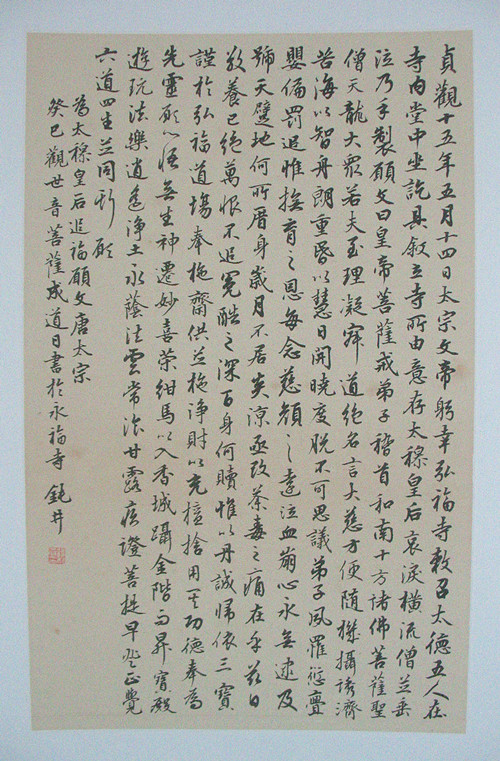 貞觀十五年五月十四日太宗文帝躬幸弘福寺敕召太德五人在
寺內堂中坐訖具敘立寺所由意存太穆皇后哀淚橫流僧並垂
泣乃手製願文曰皇帝菩薩戒弟子稽首和南十方諸佛菩薩聖
僧天龍大眾若夫至理凝寂道絕名言大慈方便隨機攝誘濟
苦海以智舟朗重昏以慧日開曉度脫不可思議弟子夙罹愆亹
嬰偏罰追惟撫育之恩每念慈顏之遠泣血崩心永無逮及
號天躄地何所厝身歲月不居炎涼亟改荼毒之痛在乎茲日
敬養已絕萬恨不追冤酷之深百身何贖惟以丹誠歸依三寶
謹於弘福道場奉施齋供並施淨財以充檀捨用其功德奉為
先靈願心悟無生神遷妙喜策紺馬以入香城躡金階而昇寶殿
遊玩法樂逍遙淨土永蔭法雲常飡甘露疾證菩提早登正覺
六道四生並同斯願
為太穆皇后追福願文唐太宗
癸巳觀世音菩薩成道日書於永福寺 鈍井